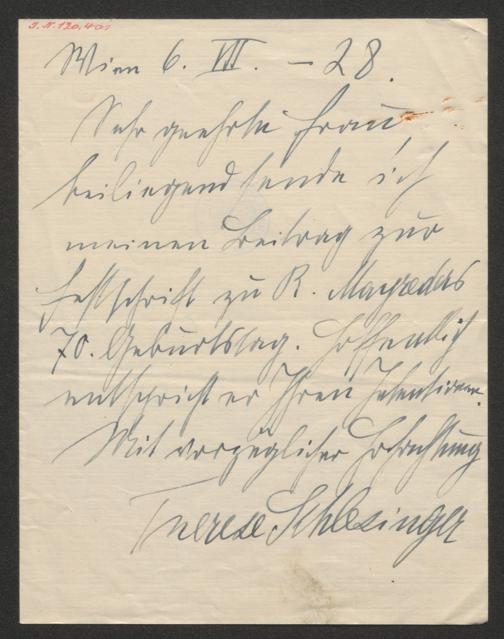 J.N. 120.401
Wien 6. VII. – 28.
Sehr geehrte Frau!
beiliegend sende ich
meinen Beitrag zur
Festschrift zu R. Mayreders
70. Geburtstag. Hoffentlich
entspricht er Ihren Intentionen.
Mit vorzüglicher Hochachtung
Therese Schlesinger